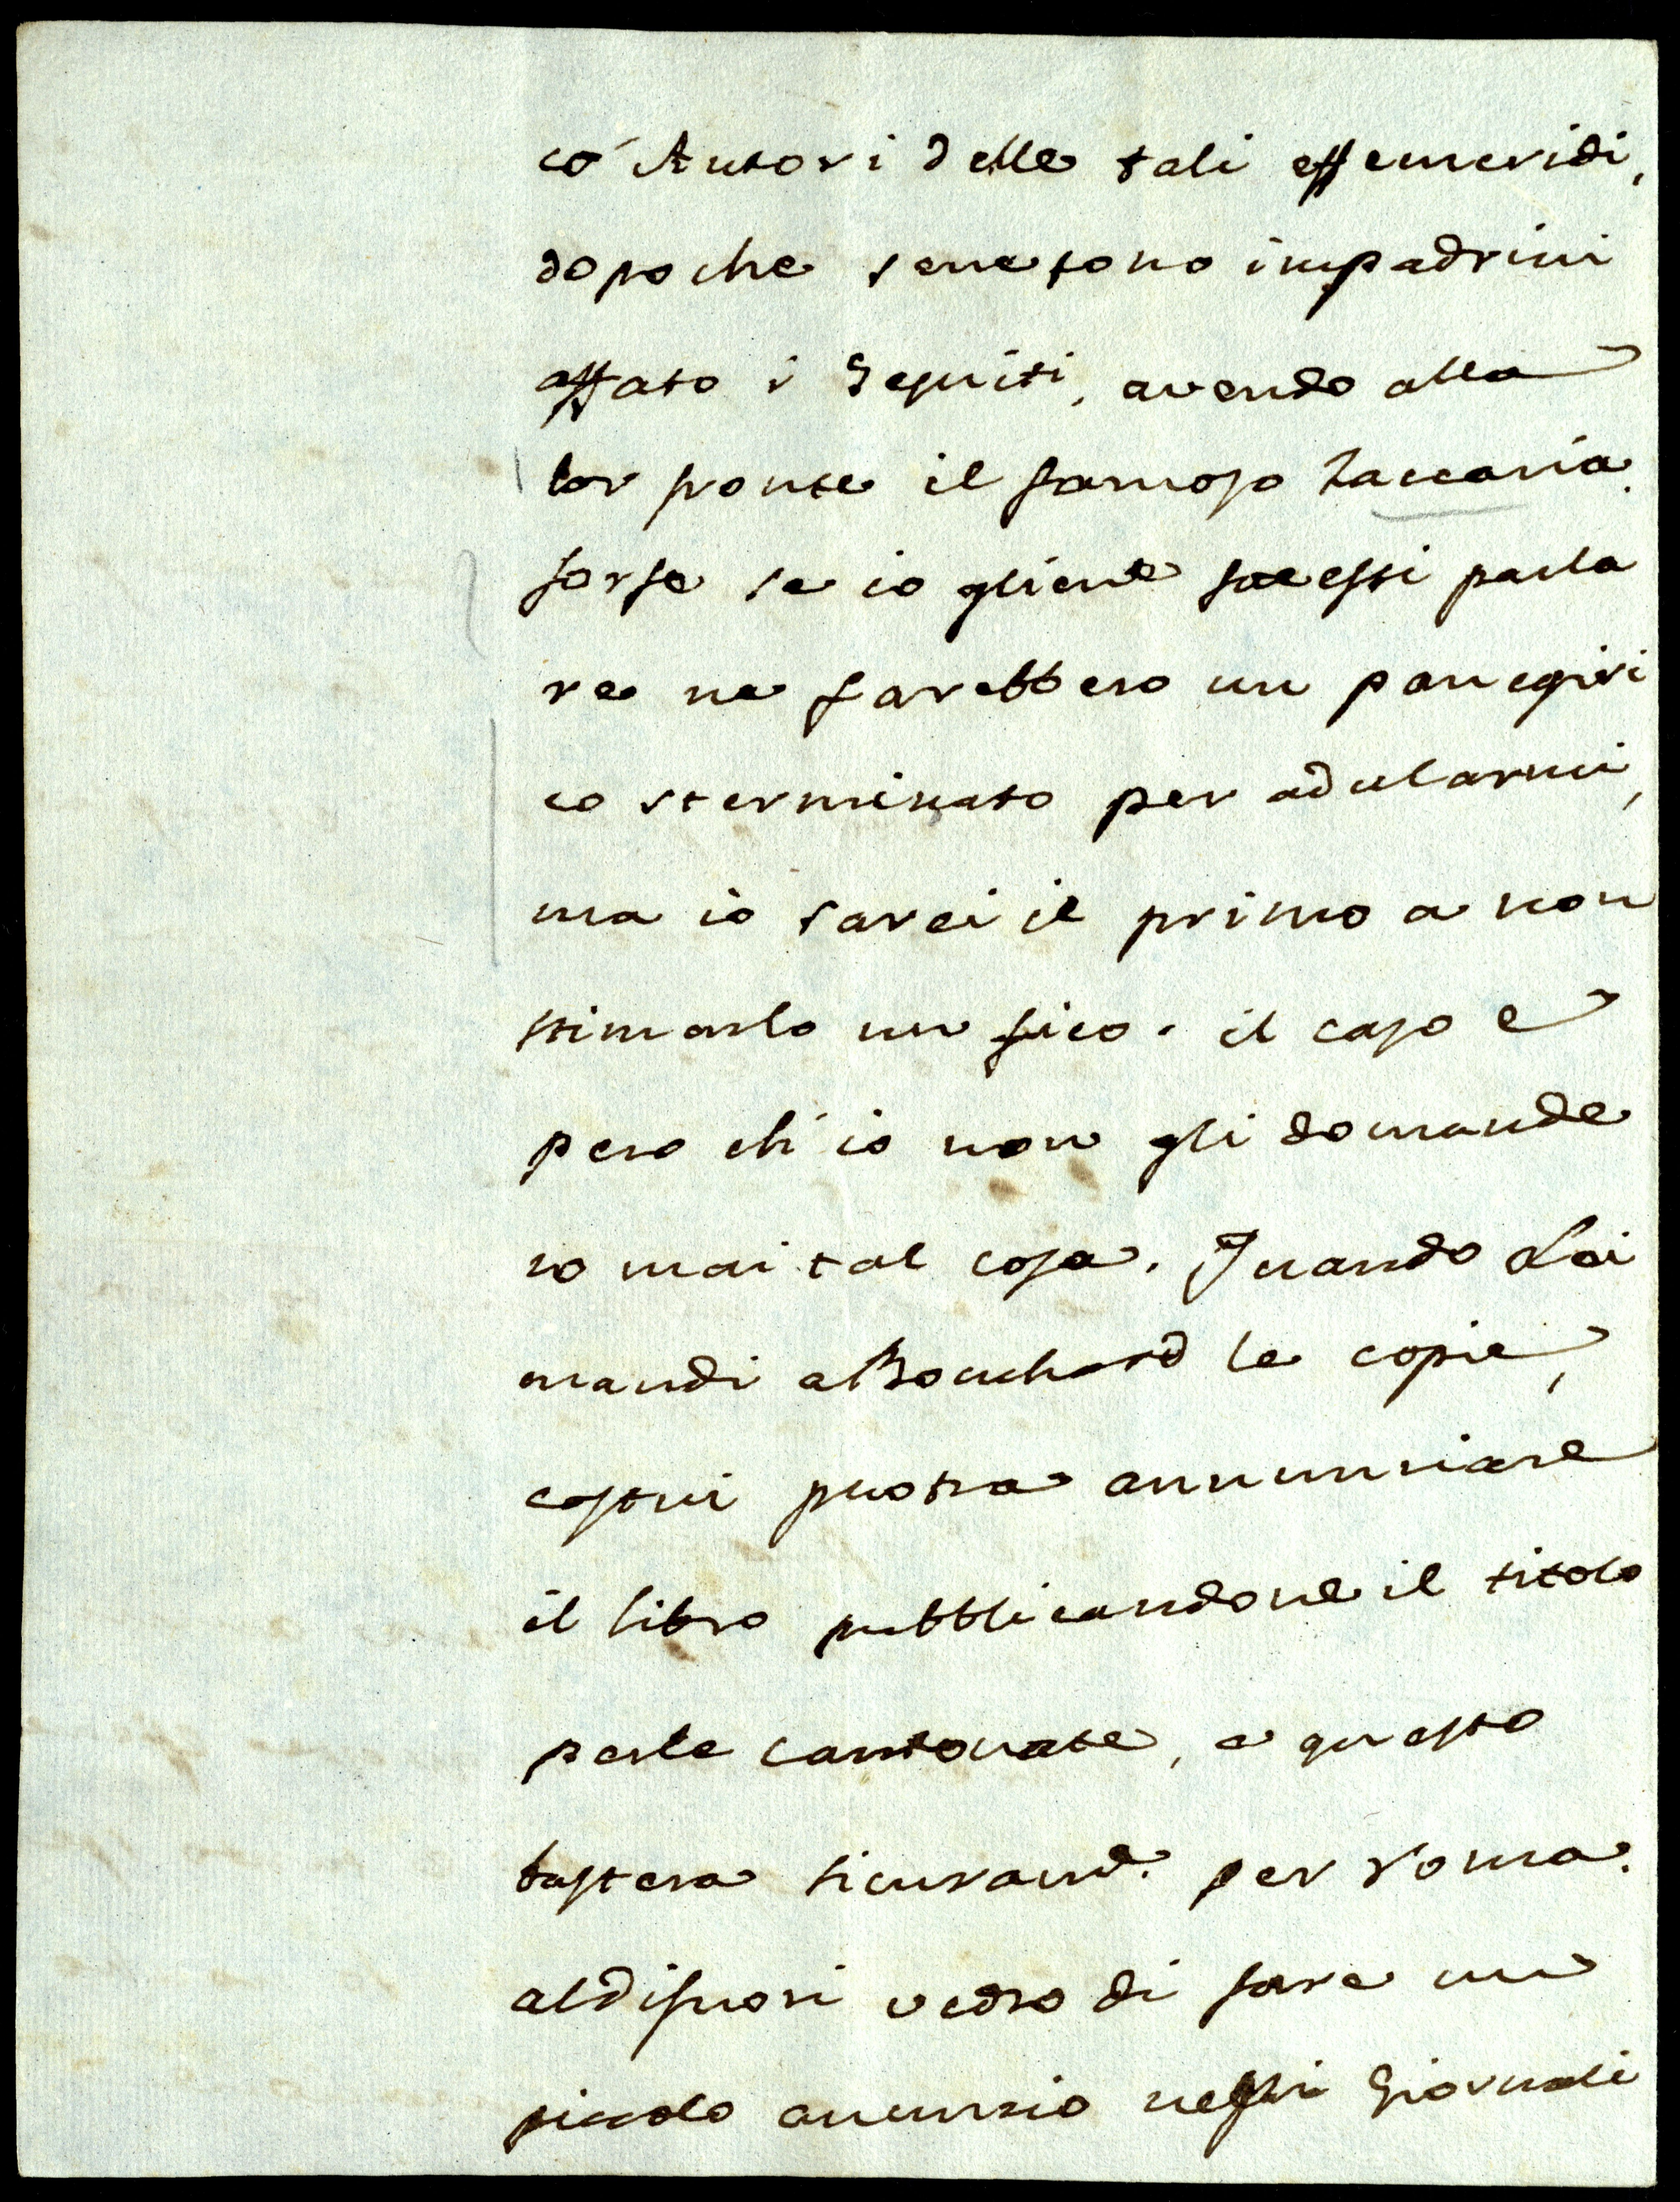 co' Autori delle tali effemeridi,
dopoche senesono impadrini
affato i Gesuiti, avendo alla
lor fronte il famoso Zaccaria.
forse se io gliene facessi parla
re ne farebbero un panegiri
co sterminato per adularmi,
ma io sarei il primo a non
stimarlo un fico. il caso e
pero ch'io non gli domande
ro mai tal cosa. Quando Lei
mandi a Bouchard le copie,
costui puotra annunziare
il libro pubblicandone il titolo
perle cantonate, e questo
bastera sicuram.e per roma.
aldifuori vedro di fare un
piccolo anunzio negli Giornali